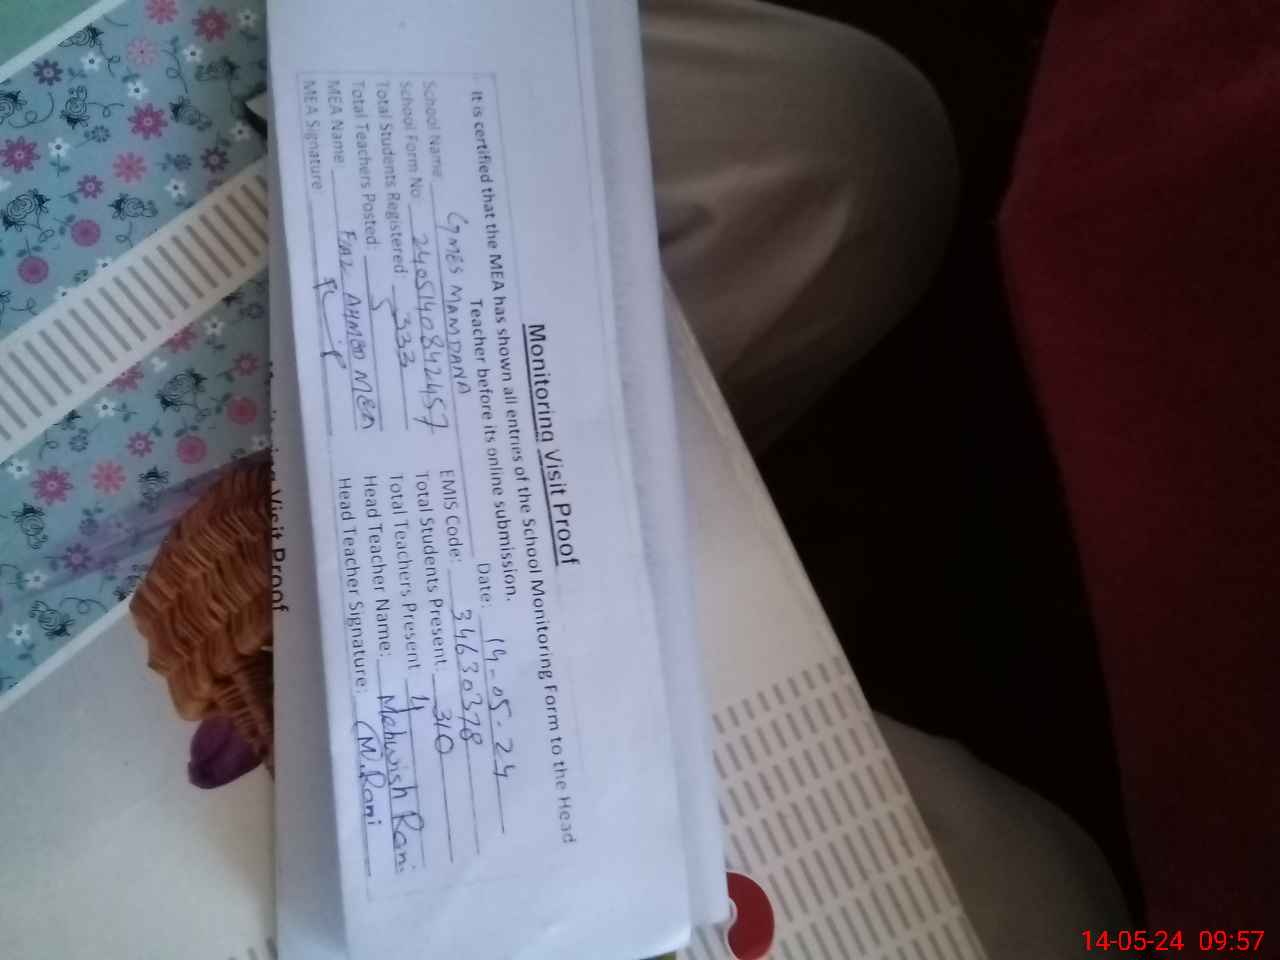 Monitoring Visit Proof
It is certified that the MEA has shown all entries of the School Monitoring Form to the Head
Teacher before its online submission.
Date: 14-05-24
School Name: GMES MAMDANA EMIS Code: 34630378
School Form No: 2405140842457 Total Students Present: 310
Total Students Registered: 333 Total Teachers Present 4
Total Teachers Posted: 5 Head Teacher Name: Mehwish Rani
MEA Name: FIAZ AHMED MEA Head Teacher Signature: (M.Rani
MEA Signature:
Visit Proof
14-05-24 09:57